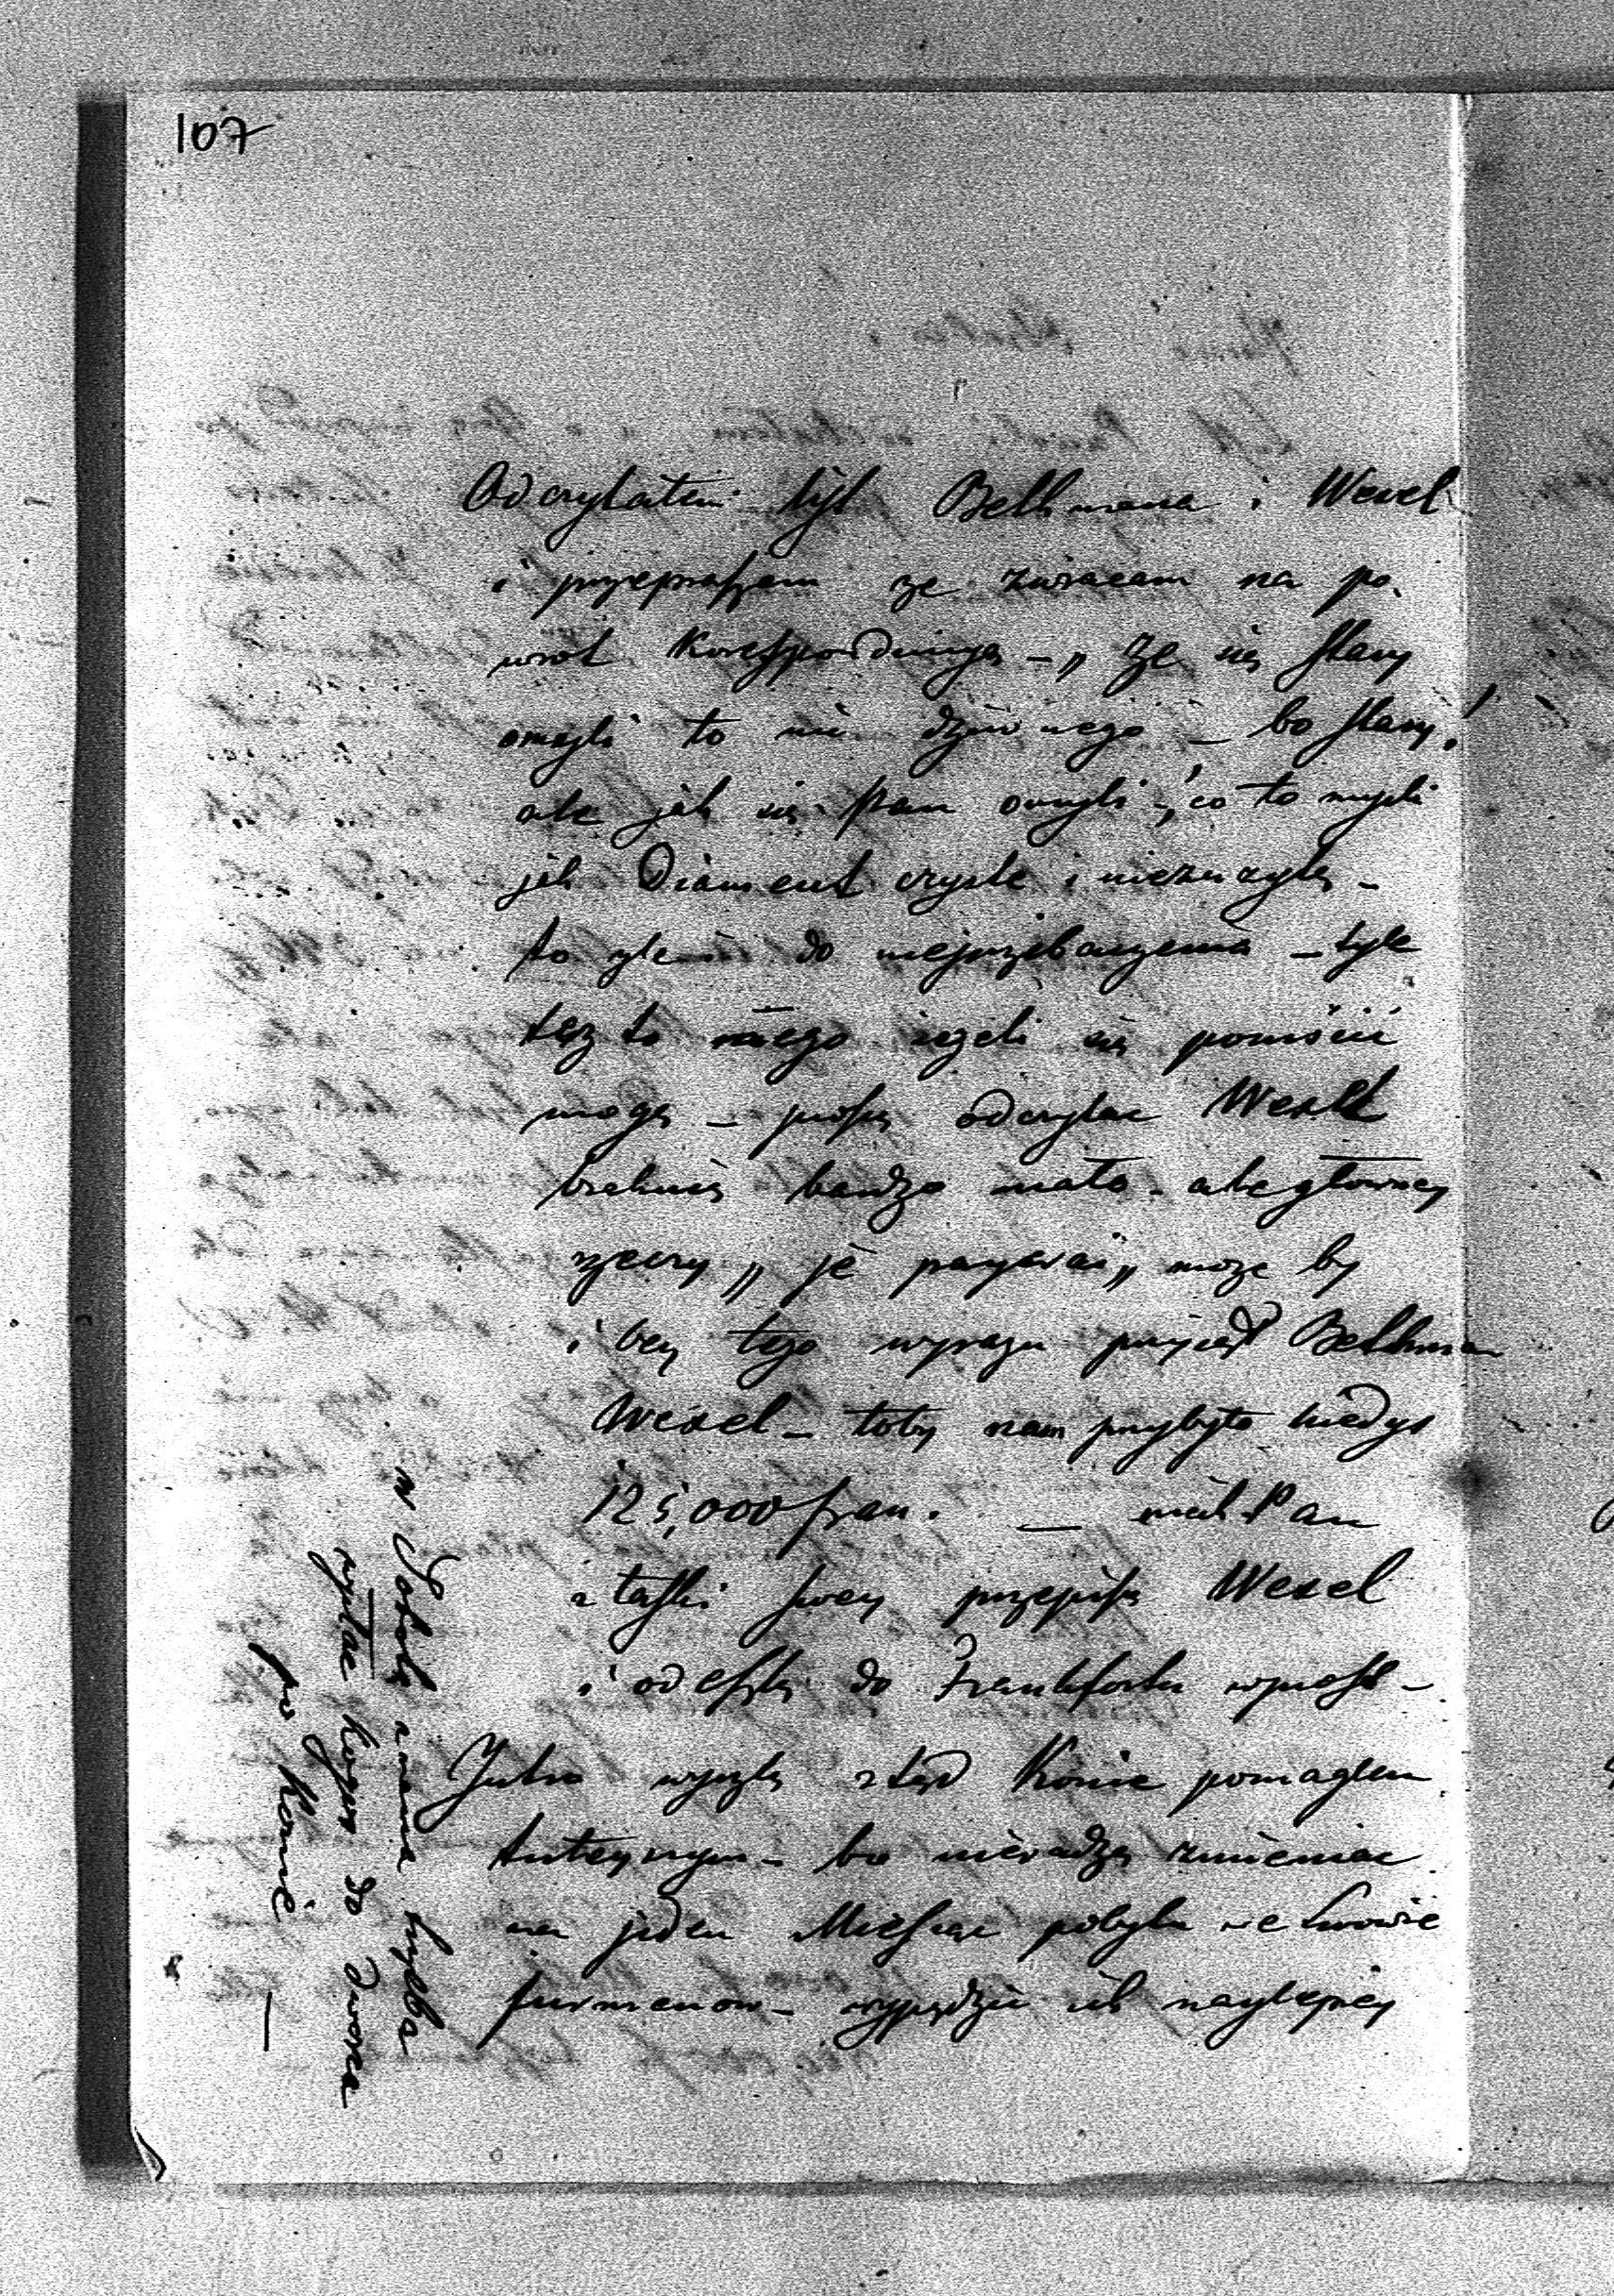 107
Odczytałem list Bethmana i Wexel
i przepraszam ze zwracam na po
wrot Korrespondencyą — „ ze się stary
omyli to nic dziwnego — bo stary!
ale jak się Pan omyli —, co to mysli
jak Diament czyste i
to zle do nieprzebaczenia — tyle
też to iezeli się pomścić
mogę — proszę odczytac Wexel
braknie bardzo mało — ale głowney
rzeczy „ je payerai „ może by
i bez tego wyrazu przyiął Bethman
Wexel — toby nam przybyło kiedys
125,000 fran. — niech Pan
z łaski swey przepisze Wexel
i odeszle do Frankfortu wprost —
Jutro wyszlę ztąd Konie pomagłem
tuteysnym — bo nieradzę zmieniac
na jeden Miesiąc pobytu we Lwowie
furmanow — wypędzić ich naylepiey
w Sobotę z rana trzeba
wysłac kogos do dwora
po Konie —